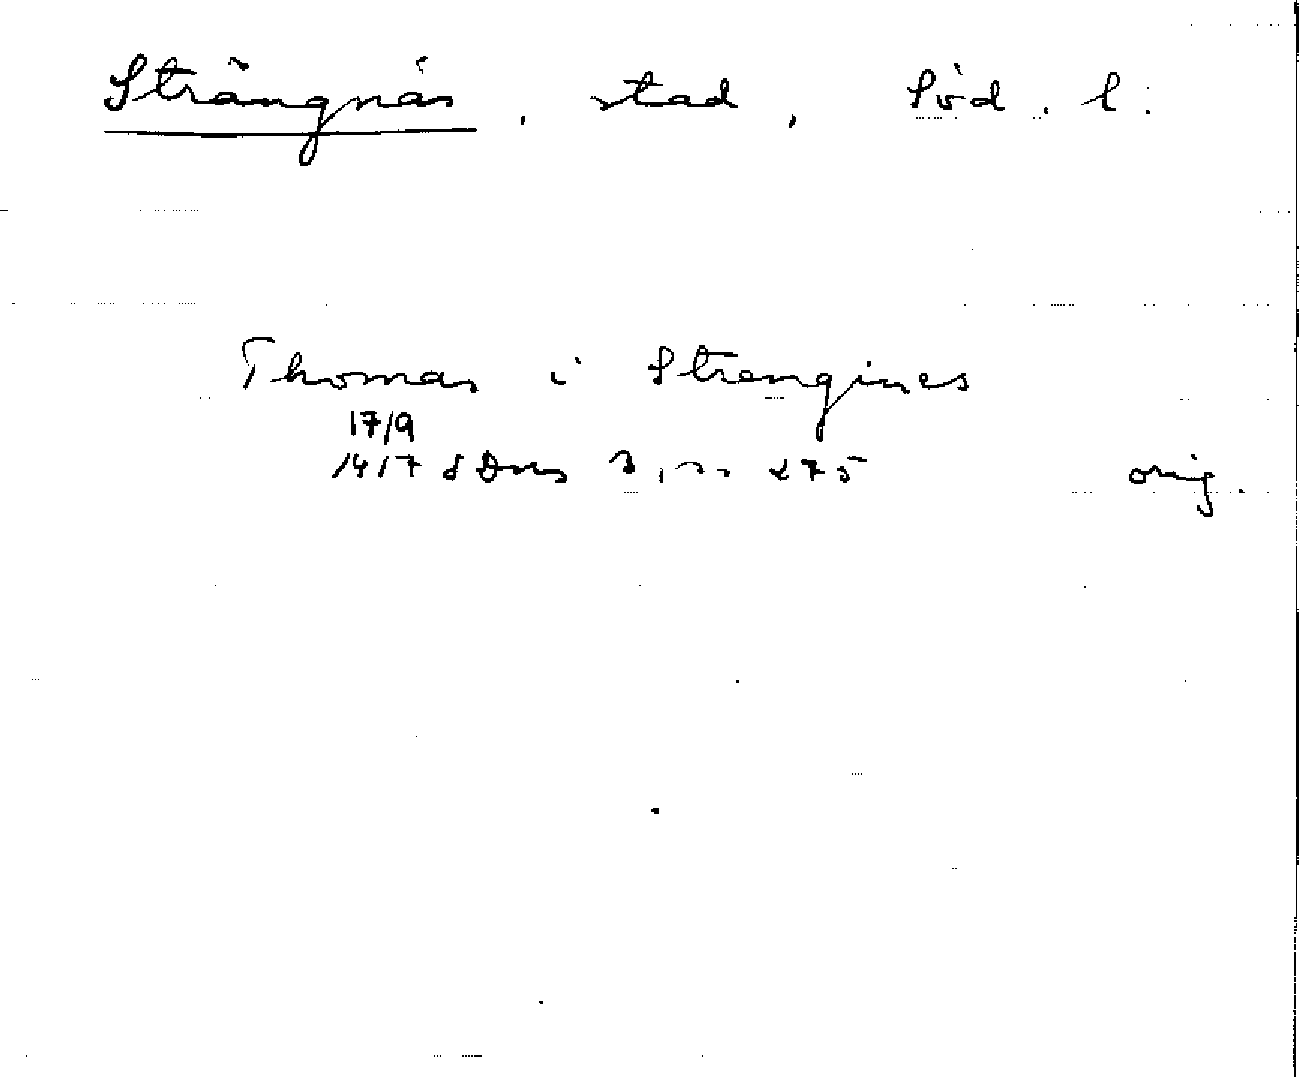 Strängnäs, stad, Söd. l:
Thomas i Strengines
17/9
1417 SDns 3, nr 275 orig.